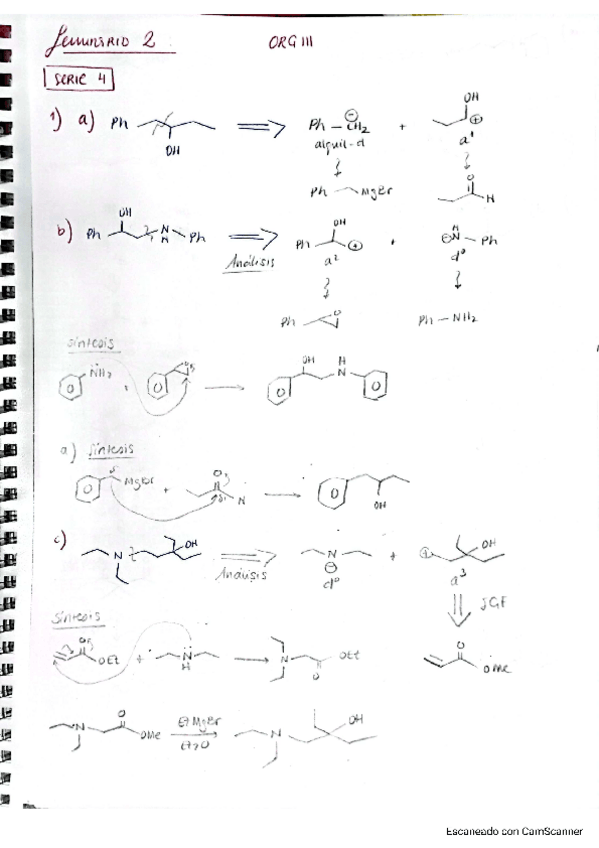 SEMINARIO 2 ORG III
SERIE 4
1) a) Ph OH ⟹ Ph – CH2 ⊖ + OH ⊕
alquil-d a¹
Ph MgBr O H
b) Ph OH N H Ph ⟹ Ph OH ⊕ + ⊖ N H – Ph
Análisis a² d⁰
Ph O Ph – NH2
síntesis
NH2 + O ⟶ OH H N
a) Síntesis
MgBr + O H ⟶ OH
c) N OH ⟹ N ⊖ + ⊕ OH
Análisis d⁰ a³
IGF
Síntesis
O OEt + N H ⟶ N O OEt O OMe
N O OMe EtMgBr Et2O N OH
Escaneado con CamScanner